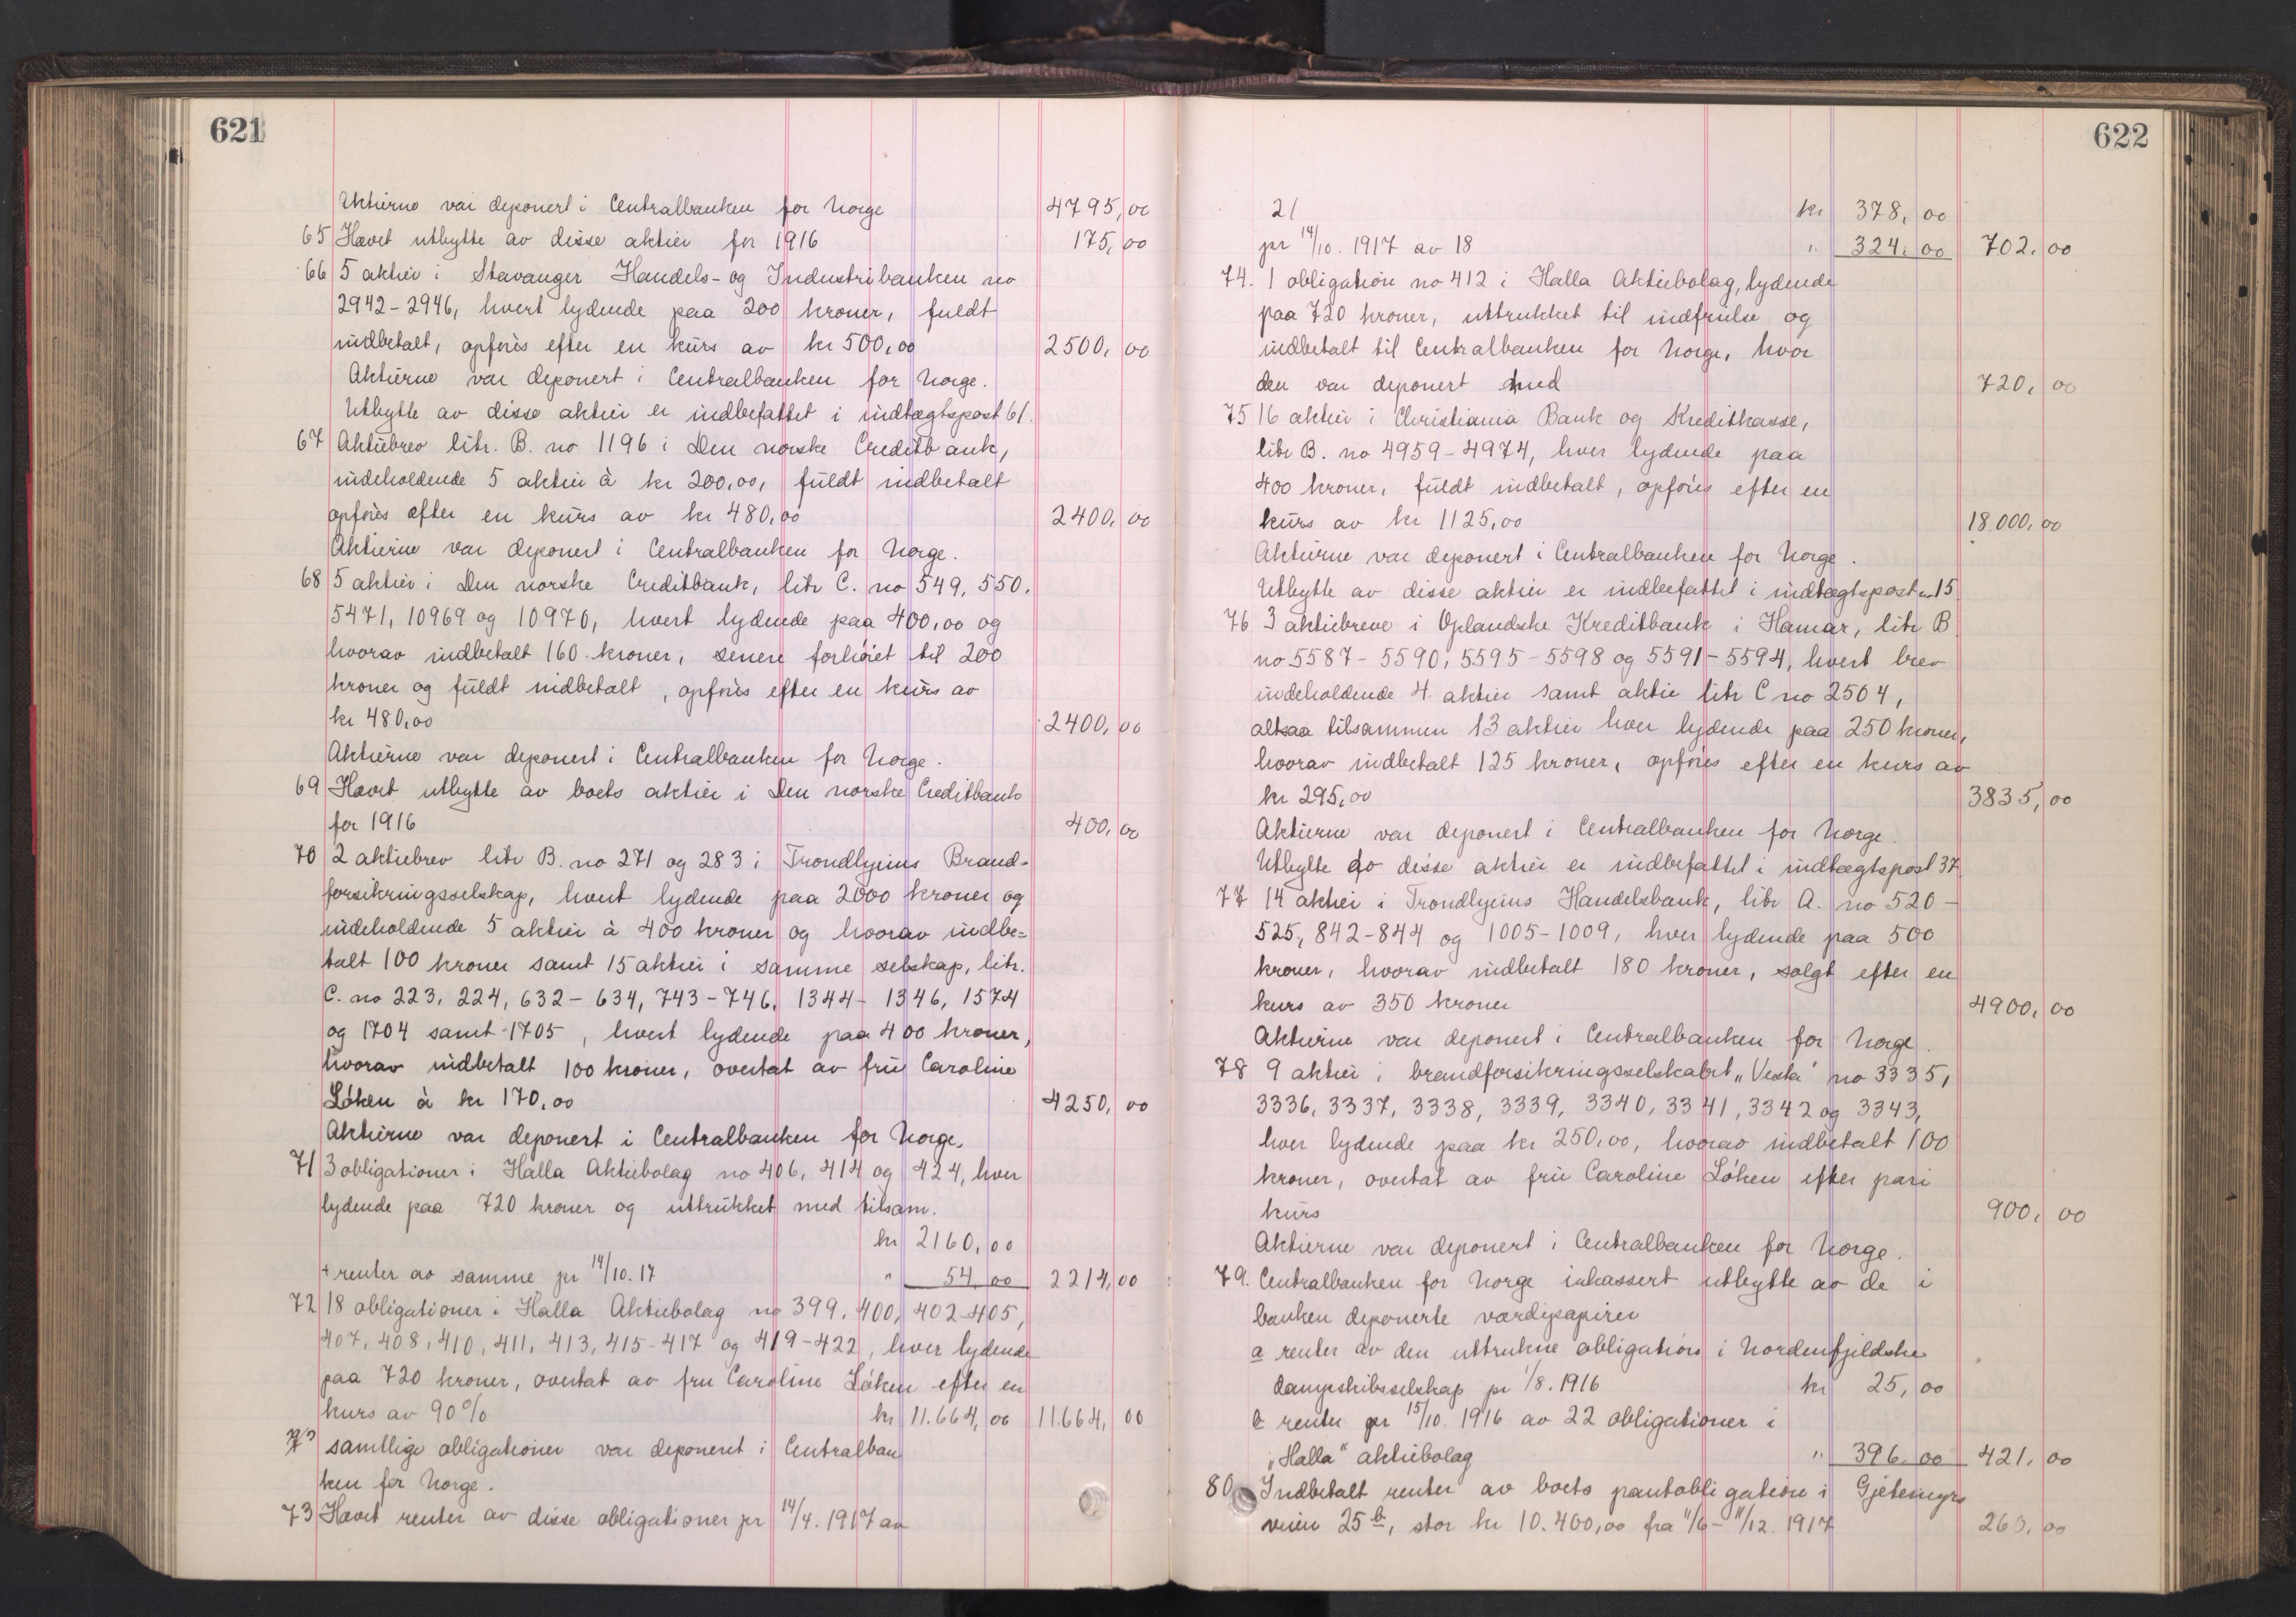 621
Aktierne var deponert i Centralbanken for Norge 4795,00
65 Hævet utbytte av disse aktier for 1916 175,00
66 5 aktier i Stavanger Handels- og Industribanken no
2942-2946, hvert lydende paa 200 kroner, fuldt
indbetalt, opføres efter en kurs av kr 500,00 2500,00
Aktierne var deponert i Centralbanken for Norge.
Utbytte av disse aktier er indbefattet i indtægtspost 61.
67 Aktiebrev litr. B. no 1196 i Den norske Creditbank,
indeholdende 5 aktier à kr 200,00, fuldt indbetalt
opføres efter en kurs av kr 480,00 2400,00
Aktierne var deponert i Centralbanken for Norge.
68 5 aktier i Den norske Creditbank, litr C. no 549, 550,
5471, 10969 og 10970, hvert lydende paa 400,00 og
hvorav indbetalt 160 kroner, senere forhøiet til 200
kroner og fuldt indbetalt, opføres efter en kurs av
kr 480,00 2400,00
Aktierne var deponert i Centralbanken for Norge.
69 Hævet utbytte av boets aktier i Den norske Creditbank
for 1916 400,00
70 2 aktiebrev litr B. no 271 og 283 i Trondhjems Brand-
forsikringsselskap, hvert lydende paa 2000 kroner og
indeholdende 5 aktier à 400 kroner og hvorav indbe=
talt 100 kroner samt 15 aktier i samme selskap, litr.
C. no 223, 224, 632-634, 743-746, 1344-1346, 1574
og 1704 samt 1705, hvert lydende paa 400 kroner,
hvorav indbetalt 100 kroner, overtat av fru Caroline
Løken à kr 170,00 4250,00
Aktierne var deponert i Centralbanken for Norge.
71 3 obligationer i Halla Aktiebolag no 406, 414 og 424, hver
lydende paa 720 kroner og uttrukket med tilsam.
kr 2160,00
+ renter av samme pr 14/10.17 " 54,00 2214,00
72 18 obligationer i Halla Aktiebolag no 399, 400, 402-405,
407, 408, 410, 411, 413, 415-417 og 419-422, hver lydende
paa 720 kroner, overtat av fru Caroline Løken efter en
kurs av 90% kr 11.664,00 11.664,00
samtlige obligationer var deponert i Centralban
ken for Norge.
73 Hævet renter av disse obligationer pr 14/4.1917 av
622
21 kr 378,00
pr 14/10.1917 av 18 " 324,00 702,00
74. 1 obligation no 412 i Halla Aktiebolag, lydende
paa 720 kroner, uttrukket til indfrielse og
indbetalt til Centralbanken for Norge, hvor
den var deponert med 720,00
75 16 aktier i Christiania Bank og Kreditkasse,
litr B. no 4959-4974, hver lydende paa
400 kroner, fuldt indbetalt, opføres efter en
kurs av kr 1125,00 18.000,00
Aktierne var deponert i Centralbanken for Norge.
Utbytte av disse aktier er indbefattet i indtægtspost 15
76 3 aktiebreve i Oplandske Kreditbank i Hamar, litr B
no 5587-5590, 5595-5598 og 5591-5594, hvert brev
indeholdende 4 aktier samt aktie litr C no 2504,
altsaa tilsammen 13 aktier hver lydende paa 250 kroner,
hvorav indbetalt 125 kroner, opføres efter en kurs av
kr 295,00 3835,00
Aktierne var deponert i Centralbanken for Norge.
Utbytte av disse aktier er indbefattet i indtægtspost 37.
77 14 aktier i Trondhjems Handelsbank, litr A. no 520-
525, 842-844 og 1005-1009, hver lydende paa 500
kroner, hvorav indbetalt 180 kroner, solgt efter en
kurs av 350 kroner 4900,00
Aktierne var deponert i Centralbanken for Norge.
78 9 aktier i brandforsikringsselskabet „Vesta" no 3335,
3336, 3337, 3338, 3339, 3340, 3341, 3342 og 3343,
hver lydende paa kr 250,00, hvorav indbetalt 100
kroner, overtat av fru Caroline Løken efter pari
kurs 900,00
Aktierne var deponert i Centralbanken for Norge.
79. Centralbanken for Norge inkassert utbytte av de i
banken deponerte værdipapirer
a renter av den uttrukne obligation i Nordenfjeldske
dampskibsselskap pr 1/8.1916 kr 25,00
b renter pr 15/10.1916 av 22 obligationer i
„Halla" aktiebolag " 396,00 421,00
80 Indbetalt renter av boets pantobligation i Gjetemyrs
veien 25 b, stor kr 10.400,00 fra 11/6-11/12.1917 260,00